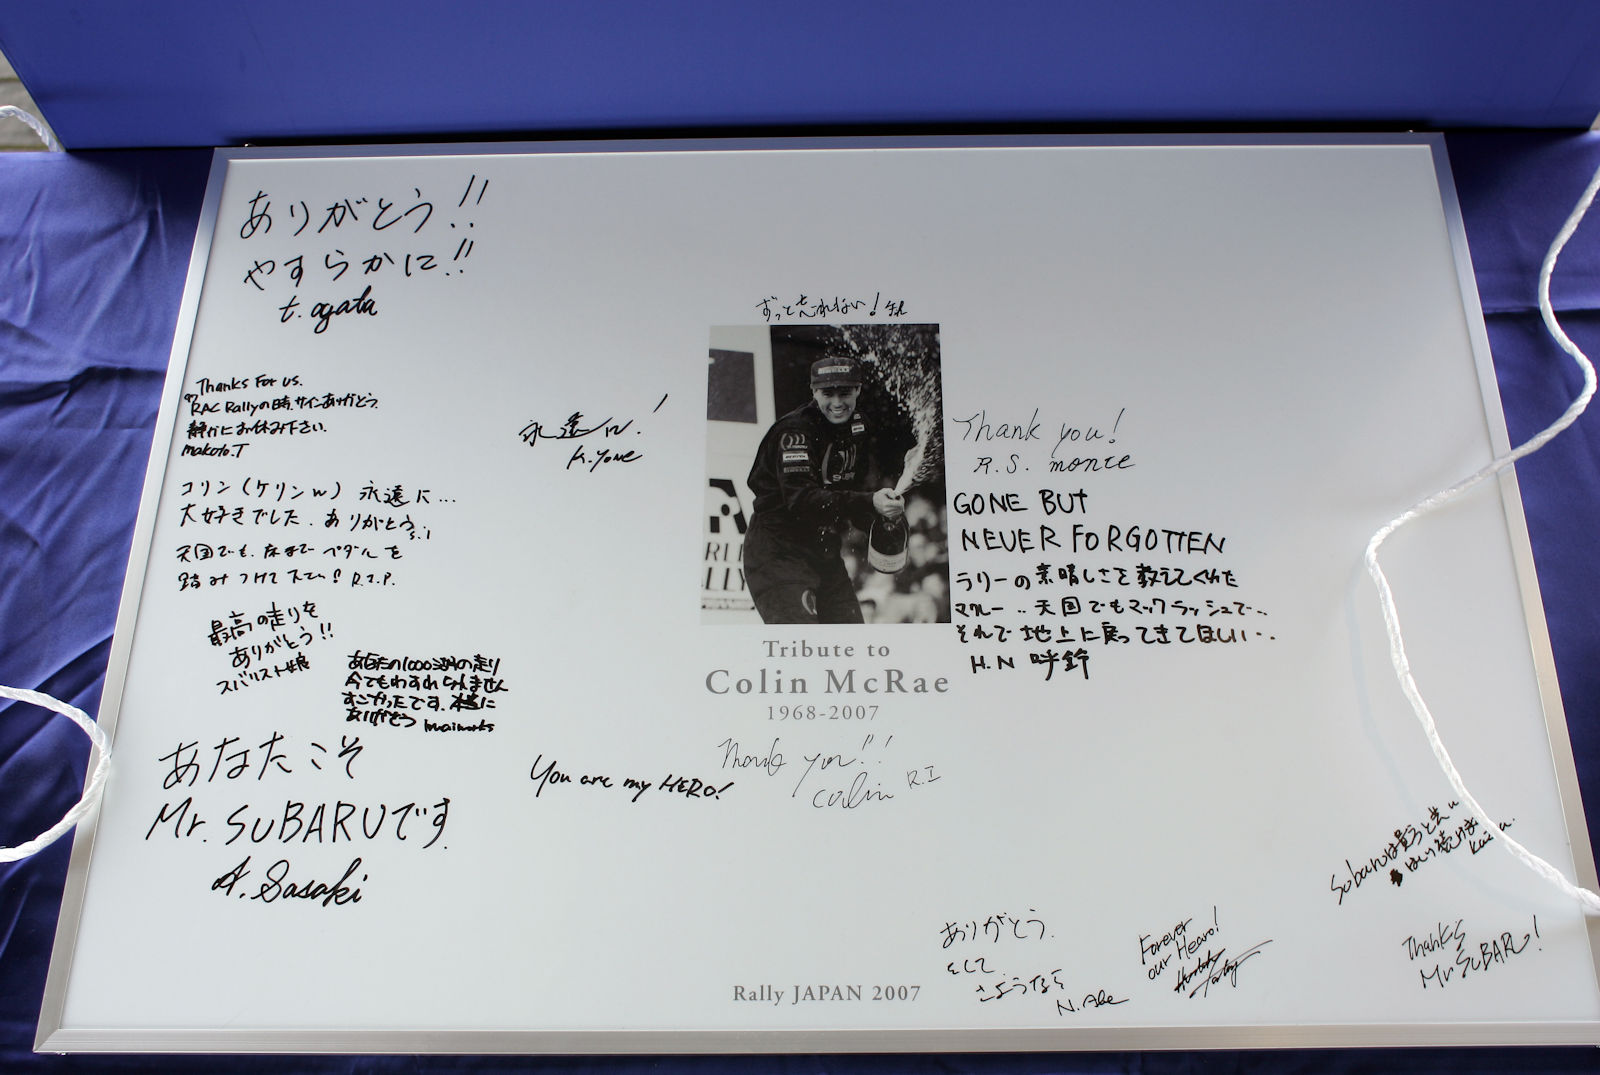 ありがとう!!
やすらかに!!
t. ogata
ずっと忘れない!
Thanks For us.
'97 RAC Rallyの時、サインありがとう。
静かにお休み下さい。
makoto.T
永遠に!
K.Yone
コリン(ケリンw) 永遠に...
大好きでした。ありがとう
天国でも、床までペダルを
踏みつけて下さい! R.I.P.
最高の走りを
ありがとう!!
スバリスト娘
あなたの1000湖の走り
今でもわすれられません
すごかったです。本当に
ありがとう
あなたこそ
Mr. SUBARUです.
A. Sasaki
PIRELLI
Thank you!
R.S. monte
GONE BUT
NEVER FORGOTTEN
ラリーの素晴しさを教えてくれた
マクレー..天国でもマックラッシュで..
それで地上に戻ってきてほしい..
H.N 呼鈴
Tribute to
Colin McRae
1968-2007
Thank you!!
Colin R.I
You are my HERO!
Subaruは
ありがとう.
そして
さようなら
N. Abe
Forever
our Hearo!
Thanks
Mr SUBARU!
Rally JAPAN 2007